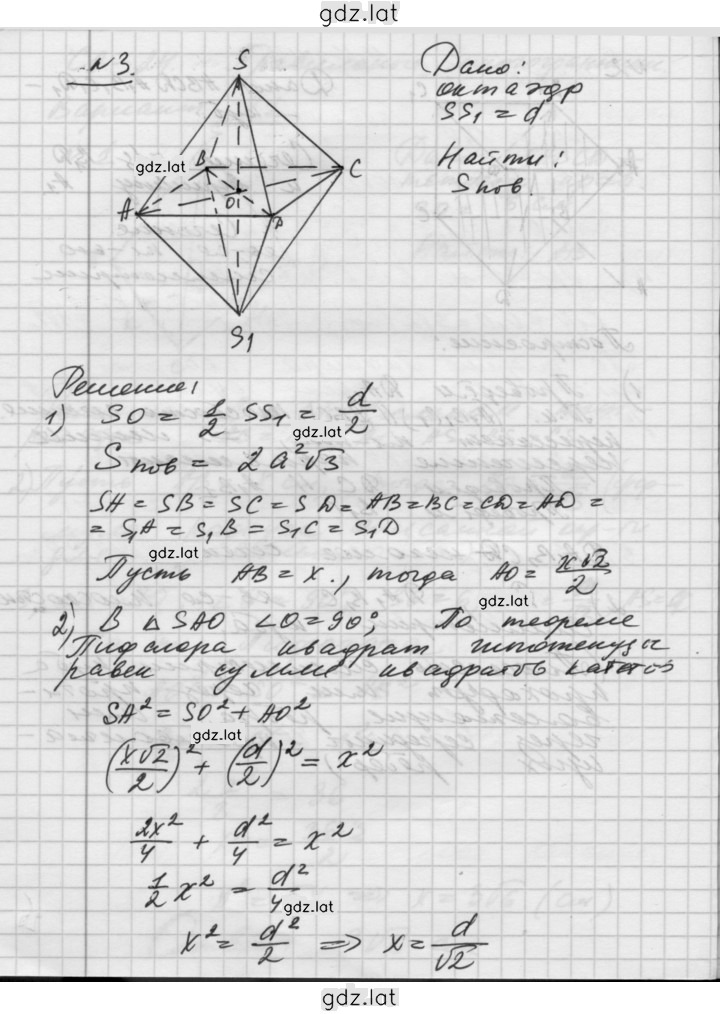 gdz.lat
№3.
Дано:
октаэдр
SS₁ = d
Найти:
Sпов.
S
B
C
gdz.lat
A
O
D
S₁
Решение:
1) SO = 1/2 SS₁ = d/2
gdz.lat
Sпов = 2a²√3
SA = SB = SC = SD = AB = BC = CD = AD =
= S₁A = S₁B = S₁C = S₁D
gdz.lat
Пусть AB = x., тогда AO = x√2/2
gdz.lat
2) В △ SAO ∠O = 90°; По теореме
Пифагора квадрат гипотенузы
равен сумме квадратов катетов
SA² = SO² + AO²
gdz.lat
(x√2/2)² + (d/2)² = x²
2x²/4 + d²/4 = x²
1/2 x² = d²/4
gdz.lat
x² = d²/2 => x = d/√2
gdz.lat